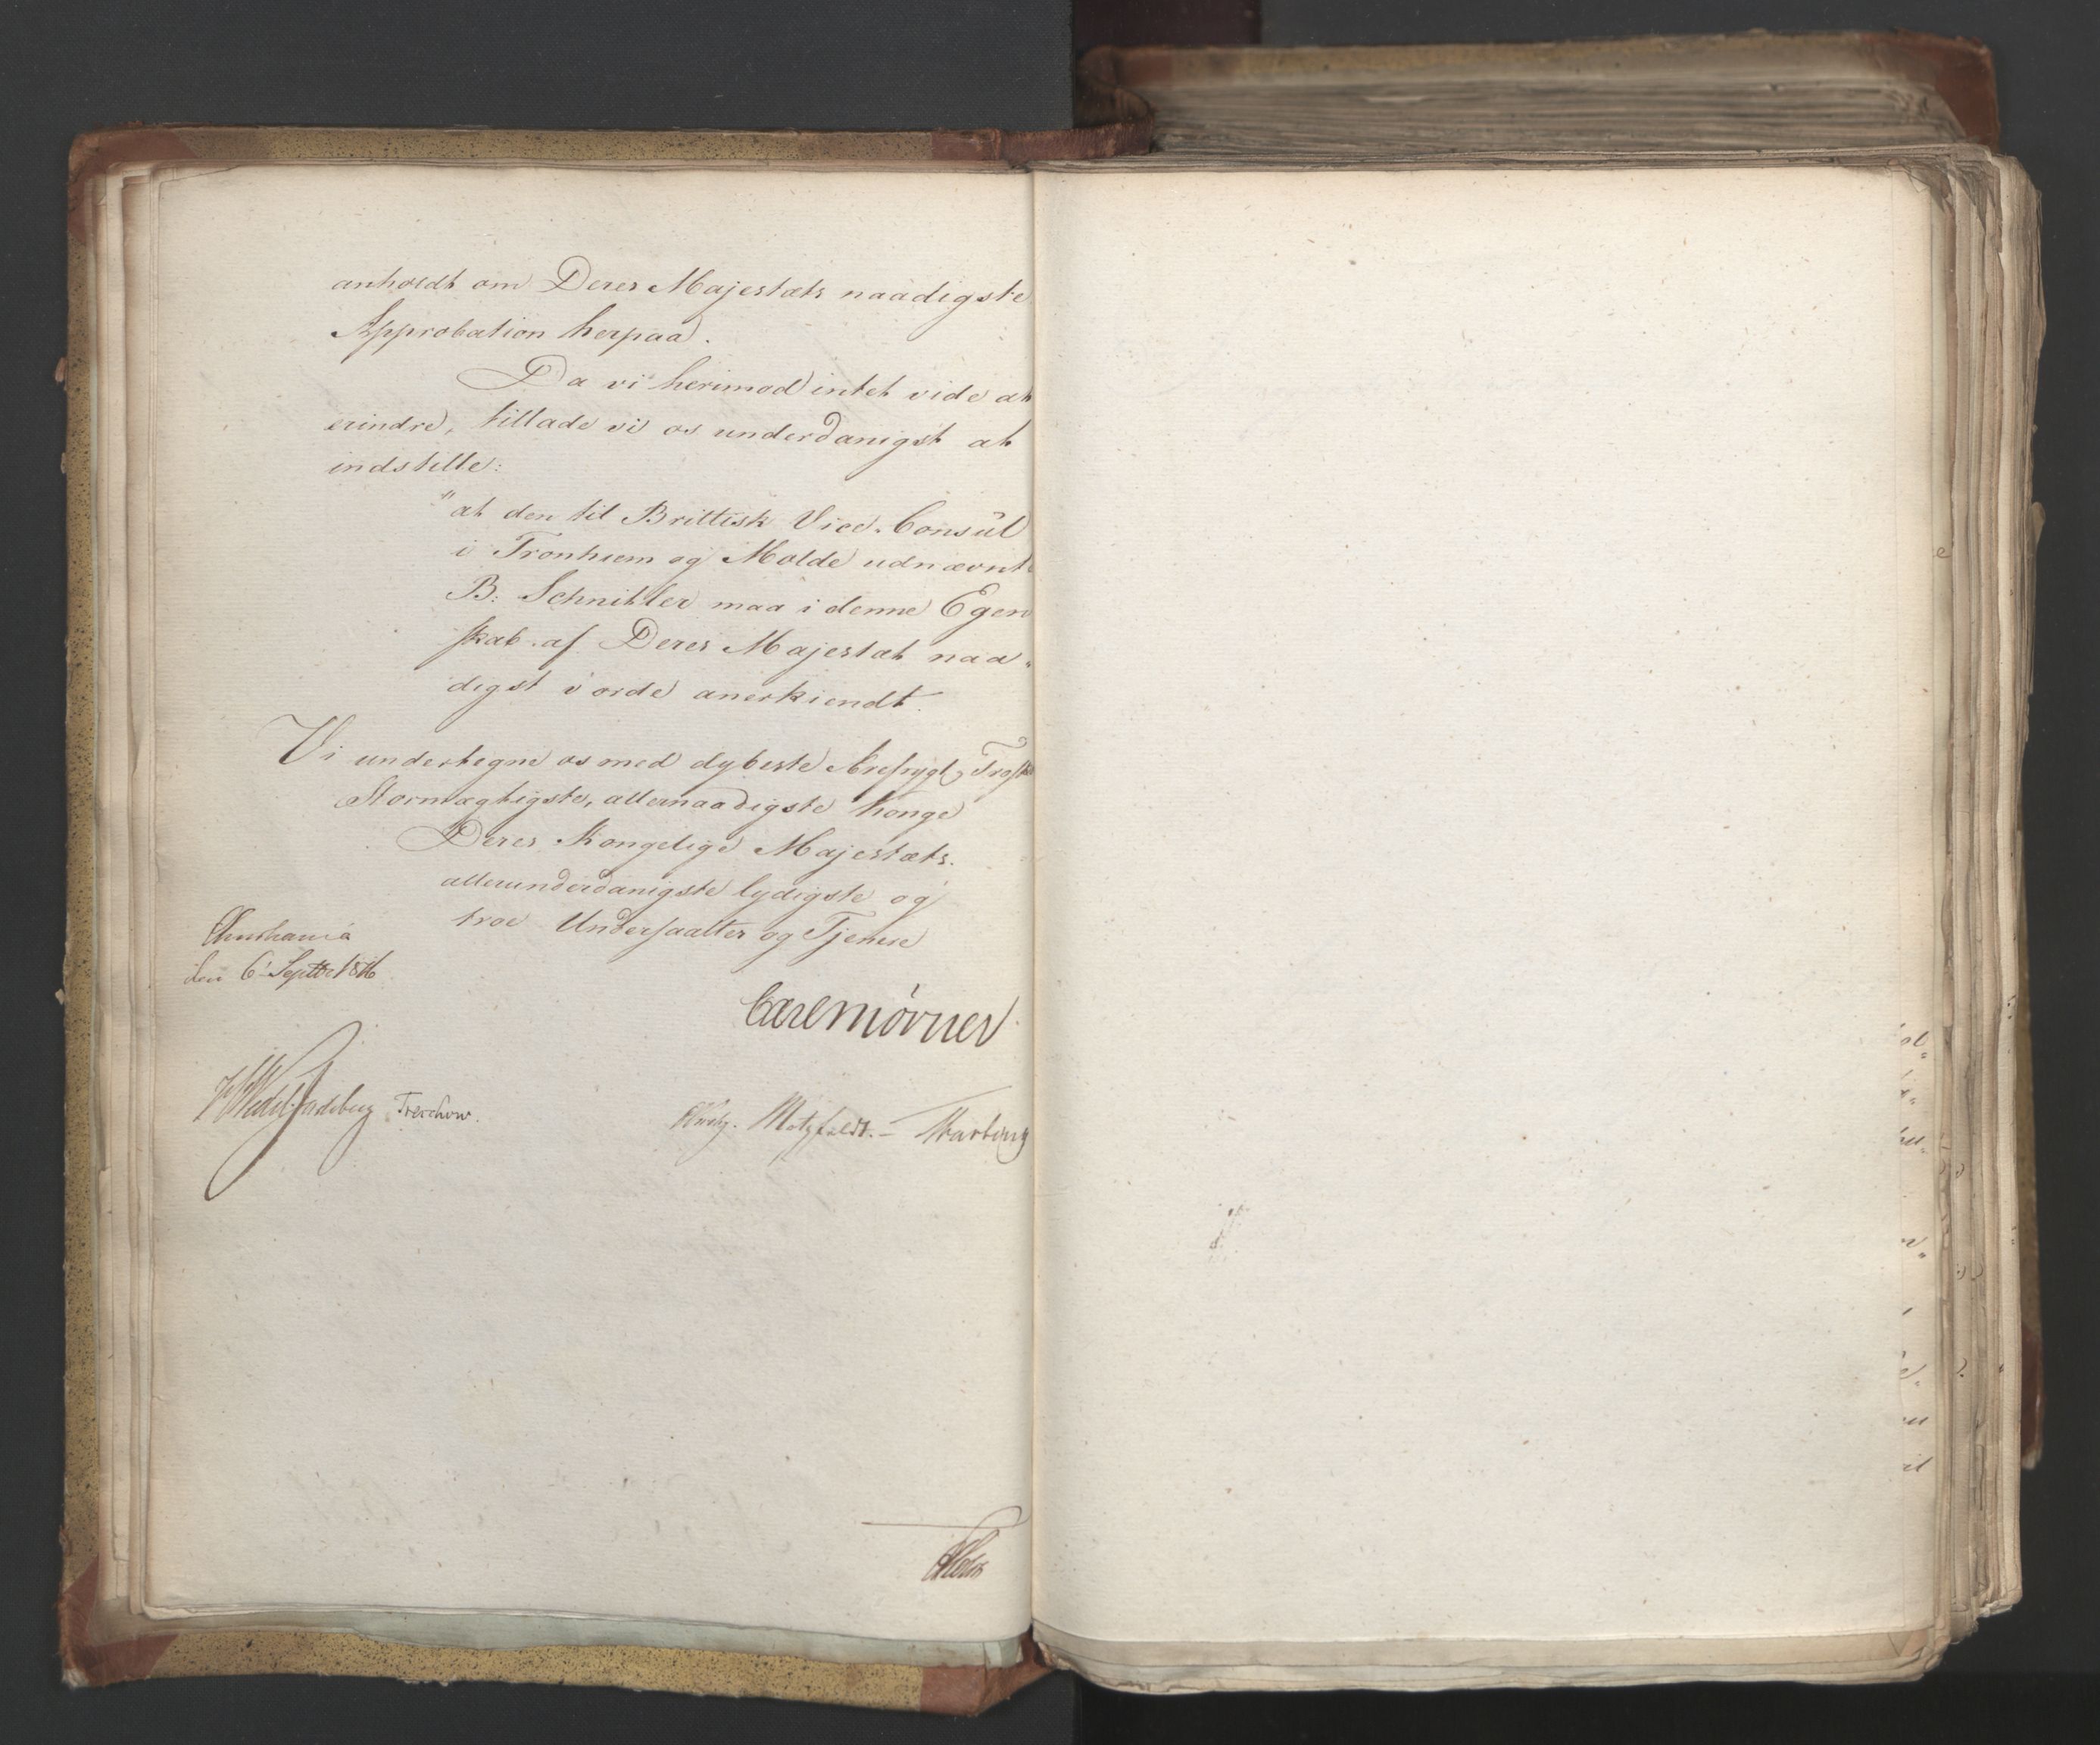 anholdt om Deres Majestæts naadigste
Approbation herpaa.
Da vi herimod intet vide at
erindre, tillade vi os underdanigst at
indstille:
"at den til Brittisk Vice-Consul
i Tronhiem og Molde udnævnte
B: Schnitler maa i denne Egen
skab af Deres Majestæt naa-
digst vorde anerkiendt.
Vi undertegne os med dybeste Ærefrygt,
Stormægtigste, allernaadigste Konge
Deres Kongelige Majestæts.
allerunderdanigste lydigste og
troe Undersaatter og Tjenere
Christiania
den 6' Septbr 1816.
Carl Mörner
Wedel Jarlsberg Treschow. Motzfeldt.